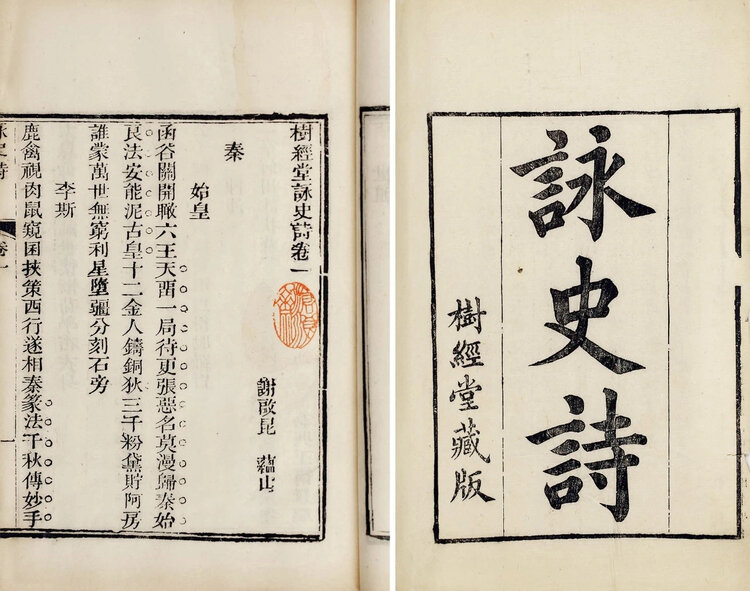 詠史詩
樹經堂藏版
樹經堂詠史詩卷一
謝啟昆 蘊山
秦
始皇
函谷關開瞰六王天畱一局待更張惡名莫漫歸秦始
良法安能泥古皇十二金人鑄銅狄三千粉黛貯阿房
誰蒙萬世無窮利星墮疆分刻石旁
李斯
鹿禽視肉鼠窺囷挾策西行遂相秦篆法千秋傳妙手
詠史詩 卷一 一